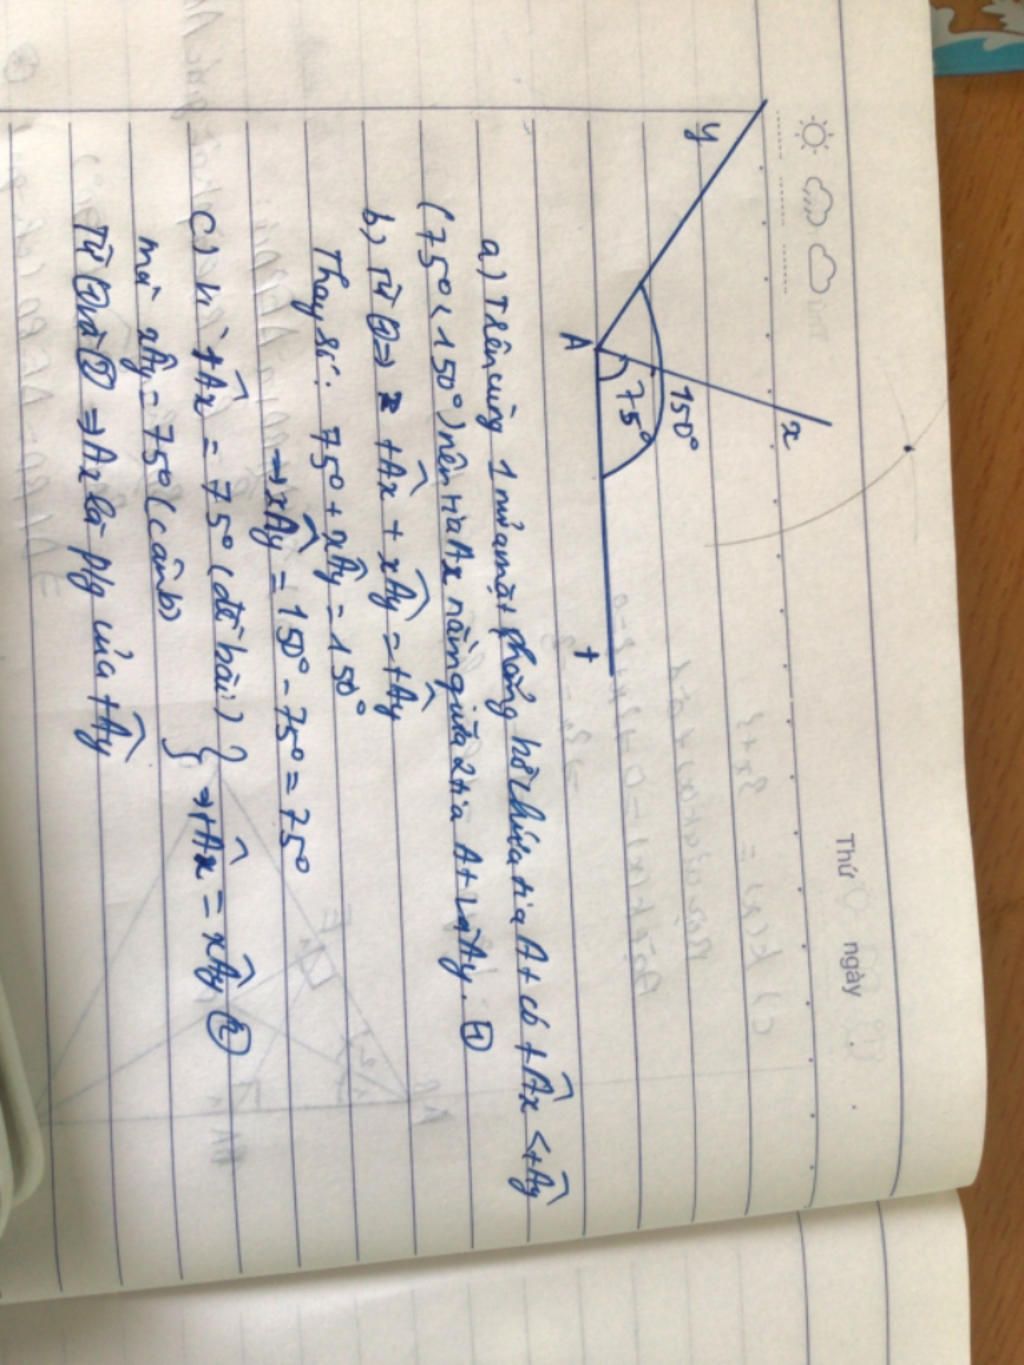 Thứ ngày
y
x
150°
75°
A
t
a) Trên cùng 1 nửa mặt phẳng bờ chứa tia At có tÂx < tÂy
(75° < 150°) nên tia Ax nằm giữa 2 tia At và Ay. ①
b) Từ ① => tÂx + xÂy = tÂy
Thay số: 75° + xÂy = 150°
→ xÂy = 150° - 75° = 75°
c) Vì tÂx = 75° (đề bài) } => tÂx = xÂy ②
mà xÂy = 75° (câu b)
Từ ① và ② => Ax là p/g của tÂy